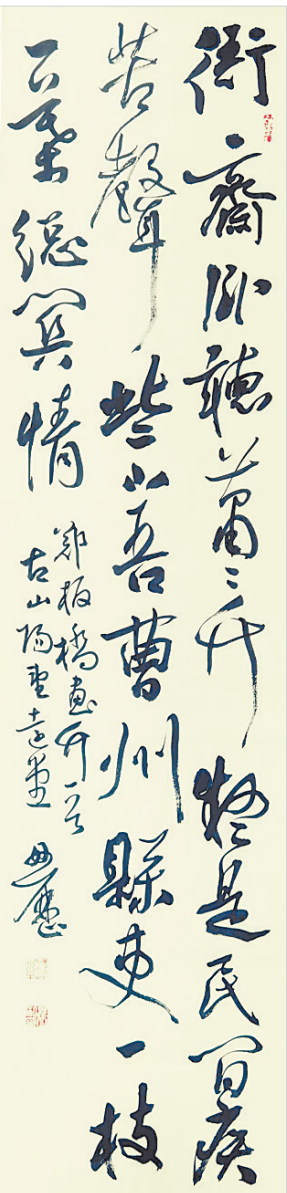 衙齋卧聽蕭〻竹疑是民間疾
苦聲些小吾曹州縣吏一枝
一葉總關情
鄭板橋畫竹
古山陽